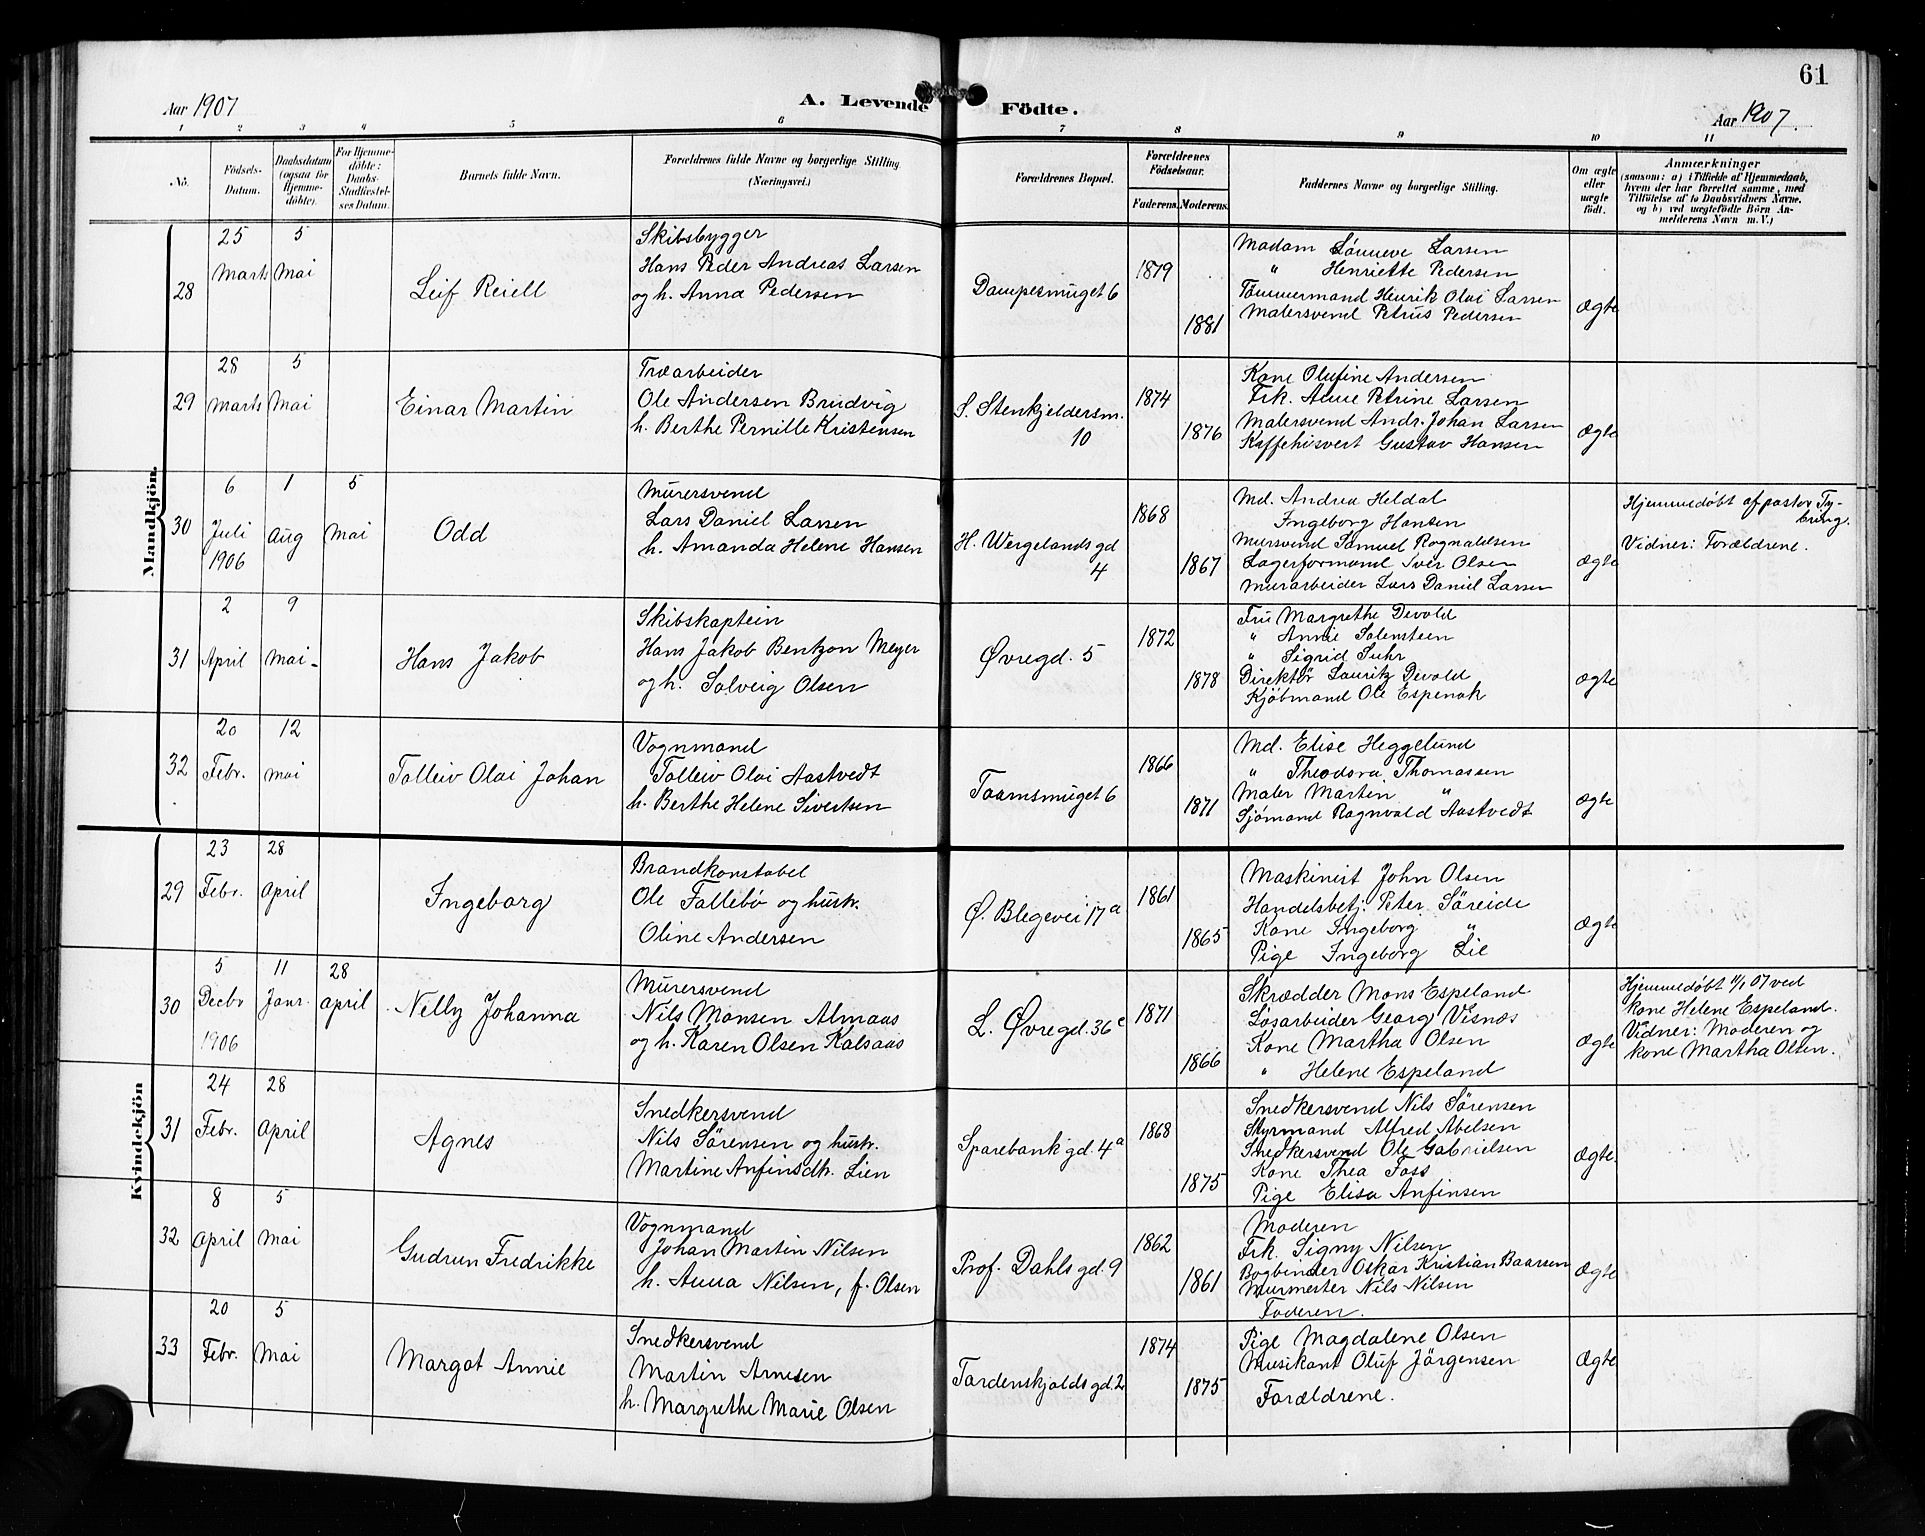 61
Aar 1907
A. Levende Födte.
Aar 1907.
1 2 3 4 5 6 7 8 9 10 11
No.
Födsels-
Datum.
Daabsdatum
(ogsaa for
Hjemme-
döbte).
For Hjemme-
döbte:
Daabs-
Stadfæstel-
ses Datum.
Barnets fulde Navn.
Forældrenes fulde Navne og borgerlige Stilling
(Næringsvei.)
Forældrenes Bopæl.
Forældrenes
Födselsaar.
Faderens. Moderens.
Faddernes Navne og borgerlige Stilling.
Om ægte
eller
uægte
født.
Anmærkninger
(saasom: a) i Tilfælde af Hjemmedaab,
hvem der har forrettet samme, med
Tilföielse af to Daabsvidners Navne.
og b) ved uægtefödte Börn An-
melderens Navn m. V.)
Mandkjön.
28
25
Marts
5
Mai
Leif Reiell
Skibsbygger
Hans Peder Andreas Larsen
og h. Anna Pedersen
Dampesmuget 6
1879
1881
Madam Sønneve Larsen
" Henriette Pedersen
Tømmermand Henrik Olai Larsen
Malersvend Petrus Pedersen
Ægte
29
28
Marts
5
Mai
Einar Martin
Træarbeider
Ole Andersen Brudvig
h. Berthe Pernille Kristensen
S. Stenkjeldersm.
10
1874
1876
Kone Olufine Andersen
Frk. Anne Petrine Larsen
Malersvend Andr. Johan Larsen
Kaffehusvert Gustav Hansen
Ægte
30
6
Juli
1906
1
Aug
5
Mai
Odd
Murersvend
Lars Daniel Larsen
h. Amanda Helene Hansen
H. Wergelands gd
4
1868
1867
Md. Andrea Heldal
Ingeborg Hansen
Mursvend Samuel Rognaldsen
Lagerformand Iver Olsen
Murarbeider Lars Daniel Larsen
Ægte
Hjemmedøbt af pastor Ty-
bring.
Vidner: Forældrene.
31
2
April
9
Mai
Hans Jakob
Skibskaptein
Hans Jakob Bentzon Meyer
og h. Solveig Olsen
Øvregd. 5
1872
1878
Fru Margrethe Devold
" Annie Solensteen
" Sigrid Suhr
Direktør Lauritz Devold
Kjøbmand Ole Espenak
Ægte
32
20
Febr.
12
Mai
Tolleiv Olai Johan
Vognmand
Tolleiv Olai Aastvedt
h. Berthe Helene Sivertsen
Taarnsmuget 6
1866
1871
Md. Elise Heggelund
" Theodora Thomassen
Maler Martin "
Sjømand Ragnvald Aastvedt
Ægte
Kvindekjön
29
23
Febr.
28
April
Ingeborg
Brandkonstabel
Ole Follebö og hustr.
Oline Andersen
Ø. Blegevei 17a
1861
1865
Maskinist John Olsen
Handelsbetj. Peter Søreide
Kone Ingeborg "
Pige Ingeborg Lie
Ægte
30
5
Decbr
1906
11
Janr.
28
April
Nelly Johanna
Murersvend
Nils Monsen Almaas
og h. Karen Olsen Kalsaas
L. Øvregd. 36c
1871
1866
Skrædder Mons Espeland
Løsarbeider Georg Visnes
Kone Martha Olsen
" Helene Espeland
Ægte
Hjemmedøbt 11/1 07 ved
kone Helene Espeland.
Vidner: Moderen og
kone Martha Olsen.
31
24
Febr.
28
April
Agnes
Snedkersvend
Nils Sørensen og hustr.
Martine Anfinsdtr. Lien
Sparebank gd. 4a
1868
1875
Snedkersvend Nils Sørensen
Styrmand Alfred Abelsen
Snedkersvend Ole Gabrielsen
Kone Thea Foss
Pige Elisa Anfinsen
Ægte.
32
8
April
5
Mai
Gudrun Fredrikke
Vognmand
Johan Martin Nilsen
h. Anna Nilsen, f. Olsen
Prof. Dahls gd. 9
1862
1861
Moderen
Frk. Signy Nilsen
Bogbinder Oskar Kristian Baarsen
Murmester Nils Nilsen
Faderen.
Ægte
33
20
Febr.
5
Mai
Margot Annie
Snedkersvend
Martin Arnesen
h. Margrethe Marie Olsen
Tordenskjolds gd. 2
1874
1875
Pige Magdalene Olsen
Musikant Oluf Jørgensen
Forældrene.
Ægte